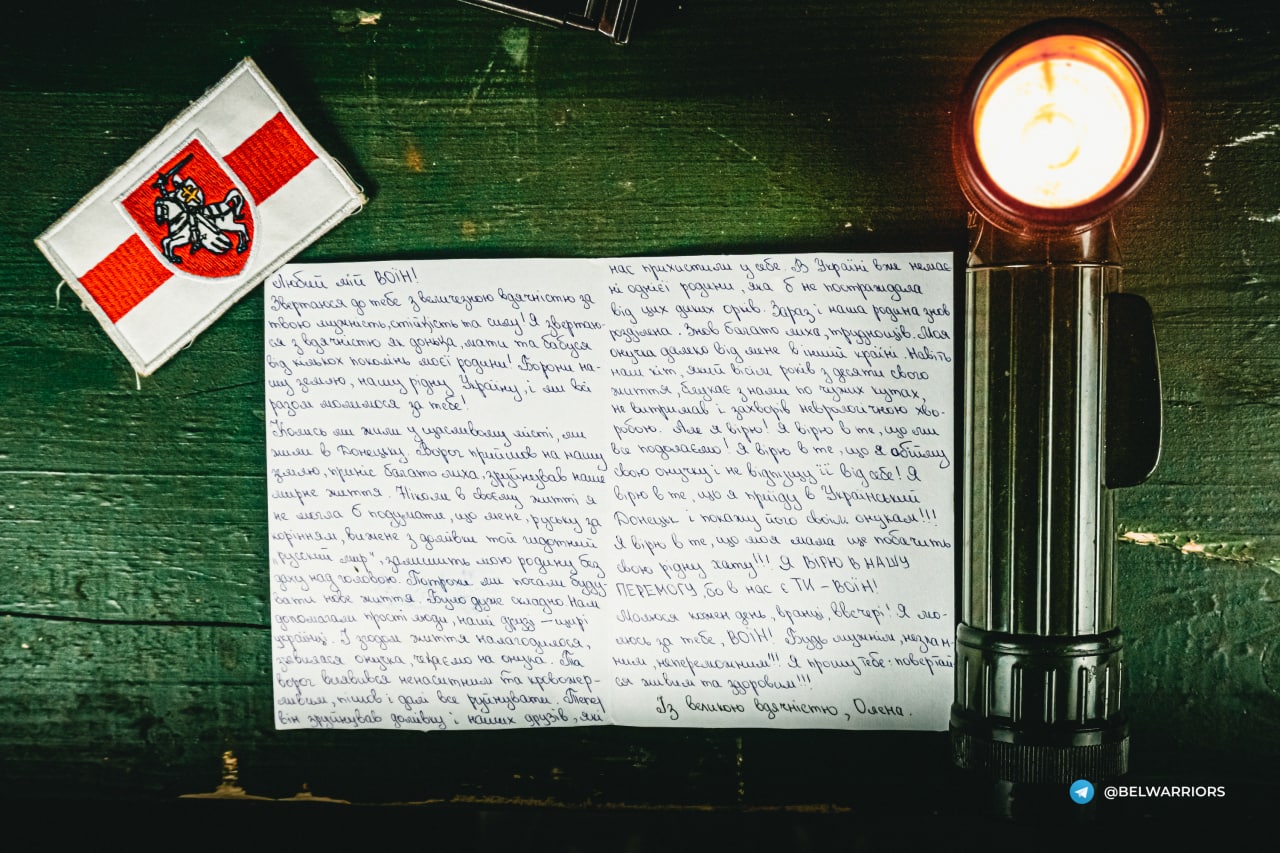 Любий мій ВОЇН!
Звертаюся до тебе з величезною вдячністю за
твою мужність, стійкість та силу! Я звертаю-
ся з вдячністю як донька, мати та бабуся
від кількох поколінь моєї родини! Борони на-
шу землю, нашу рідну Україну, і ми всі
разом молимося за тебе!
Колись ми жили у щасливому місті, ми
жили в Донецьку. Ворог прийшов на нашу
землю, приніс багато лиха, зруйнував наше
мирне життя. Ніколи в своєму житті я
не могла б подумати, що мене, руську за
корінням, вижене з домівки той гидотний
"русский мир", залишить мою родину без
даху над головою. Потрохи ми почали буду-
вати нове життя. Було дуже складно. Нам
допомагали прості люди, наші друзі – щирі
українці. І згодом життя налагодилося,
з'явилася онучка, чекаємо на онука. Та
ворог виявився ненаситним та кровожер-
ливим, пішов і далі все руйнувати. Тепер
він зруйнував домівку і наших друзів, які
нас прихистили у себе. В Україні вже немає
ні однієї родини, яка б не постраждала
від цих диких орків. Зараз і наша родина знов
розділена. Знов багато лиха, труднощів. Моя
онучка далеко від мене в іншій країні. Навіть
наш кіт, який вісім років з десяти свого
життя, блукає з нами по чужих кутах,
не витримав і захворів неврологічною хво-
робою. Але я вірю! Я вірю в те, що ми
все подолаємо! Я вірю в те, що я обійму
свою онучку і не відпущу її від себе! Я
вірю в те, що я приїду в Український
Донецьк і покажу його своїм онукам!!!
Я вірю в те, що моя мама ще побачить
свою рідну хату!!! Я ВІРЮ В НАШУ
ПЕРЕМОГУ, бо в нас є ТИ – ВОЇН!
Молюся кожен день, вранці, ввечері! Я мо-
люсь за тебе, ВОЇН! Будь мужнім, незлам-
ним, непереможним!!! Я прошу тебе: повертай
ся живим та здоровим!!!
Із великою вдячністю, Олена.
@BELWARRIORS